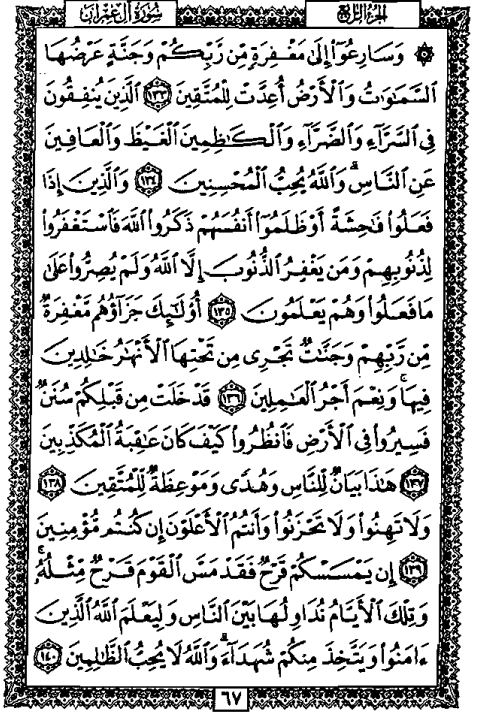 سُورَةُ آلِ عِمْرَان
الجُزْءُ الرَّابِعُ
۞ وَسَارِعُوٓا۟ إِلَىٰ مَغْفِرَةٍ مِّن رَّبِّكُمْ وَجَنَّةٍ عَرْضُهَا
ٱلسَّمَٰوَٰتُ وَٱلْأَرْضُ أُعِدَّتْ لِلْمُتَّقِينَ ١٣٣ ٱلَّذِينَ يُنفِقُونَ
فِى ٱلسَّرَّآءِ وَٱلضَّرَّآءِ وَٱلْكَٰظِمِينَ ٱلْغَيْظَ وَٱلْعَافِينَ
عَنِ ٱلنَّاسِ ۗ وَٱللَّهُ يُحِبُّ ٱلْمُحْسِنِينَ ١٣٤ وَٱلَّذِينَ إِذَا
فَعَلُوا۟ فَٰحِشَةً أَوْ ظَلَمُوٓا۟ أَنفُسَهُمْ ذَكَرُوا۟ ٱللَّهَ فَٱسْتَغْفَرُوا۟
لِذُنُوبِهِمْ وَمَن يَغْفِرُ ٱلذُّنُوبَ إِلَّا ٱللَّهُ وَلَمْ يُصِرُّوا۟ عَلَىٰ
مَا فَعَلُوا۟ وَهُمْ يَعْلَمُونَ ١٣٥ أُو۟لَٰٓئِكَ جَزَآؤُهُم مَّغْفِرَةٌ
مِّن رَّبِّهِمْ وَجَنَّٰتٌ تَجْرِى مِن تَحْتِهَا ٱلْأَنْهَٰرُ خَٰلِدِينَ
فِيهَا ۚ وَنِعْمَ أَجْرُ ٱلْعَٰمِلِينَ ١٣٦ قَدْ خَلَتْ مِن قَبْلِكُمْ سُنَنٌ
فَسِيرُوا۟ فِى ٱلْأَرْضِ فَٱنظُرُوا۟ كَيْفَ كَانَ عَٰقِبَةُ ٱلْمُكَذِّبِينَ
١٣٧ هَٰذَا بَيَانٌ لِّلنَّاسِ وَهُدًى وَمَوْعِظَةٌ لِّلْمُتَّقِينَ ١٣٨
وَلَا تَهِنُوا۟ وَلَا تَحْزَنُوا۟ وَأَنتُمُ ٱلْأَعْلَوْنَ إِن كُنتُم مُّؤْمِنِينَ
١٣٩ إِن يَمْسَسْكُمْ قَرْحٌ فَقَدْ مَسَّ ٱلْقَوْمَ قَرْحٌ مِّثْلُهُۥ ۚ
وَتِلْكَ ٱلْأَيَّامُ نُدَاوِلُهَا بَيْنَ ٱلنَّاسِ وَلِيَعْلَمَ ٱللَّهُ ٱلَّذِينَ
ءَامَنُوا۟ وَيَتَّخِذَ مِنكُمْ شُهَدَآءَ ۗ وَٱللَّهُ لَا يُحِبُّ ٱلظَّٰلِمِينَ ١٤٠
٦٧